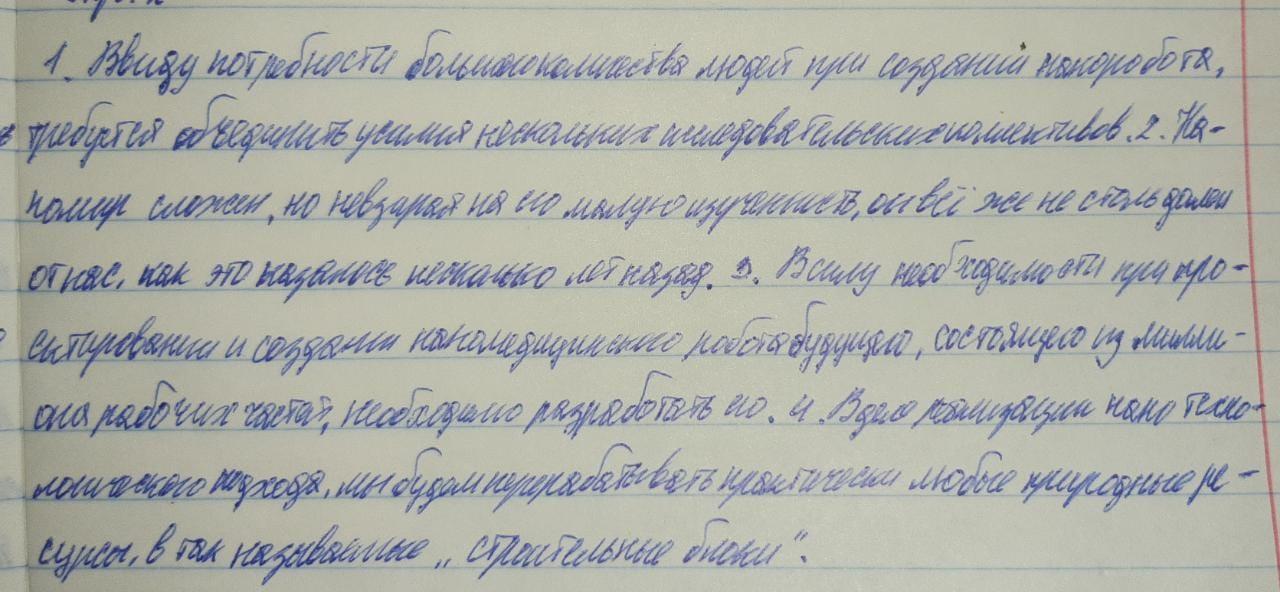 1. Ввиду потребности большого количества людей при создании наноробота,
требуется объединить усилия нескольких исследовательских коллективов. 2. На-
номир сложен, но невзирая на его малую изученность, он всё же не столь далек
от нас, как это казалось несколько лет назад. 3. В силу необходимости при про-
ектировании и создании наномедицинского робота будущего, состоящего из милли-
она рабочих частей, необходимо разработать его. 4. В деле реализации нано техно-
логического подхода, мы будем перерабатывать практически любые природные ре-
сурсы, в так называемые „строительные блоки".